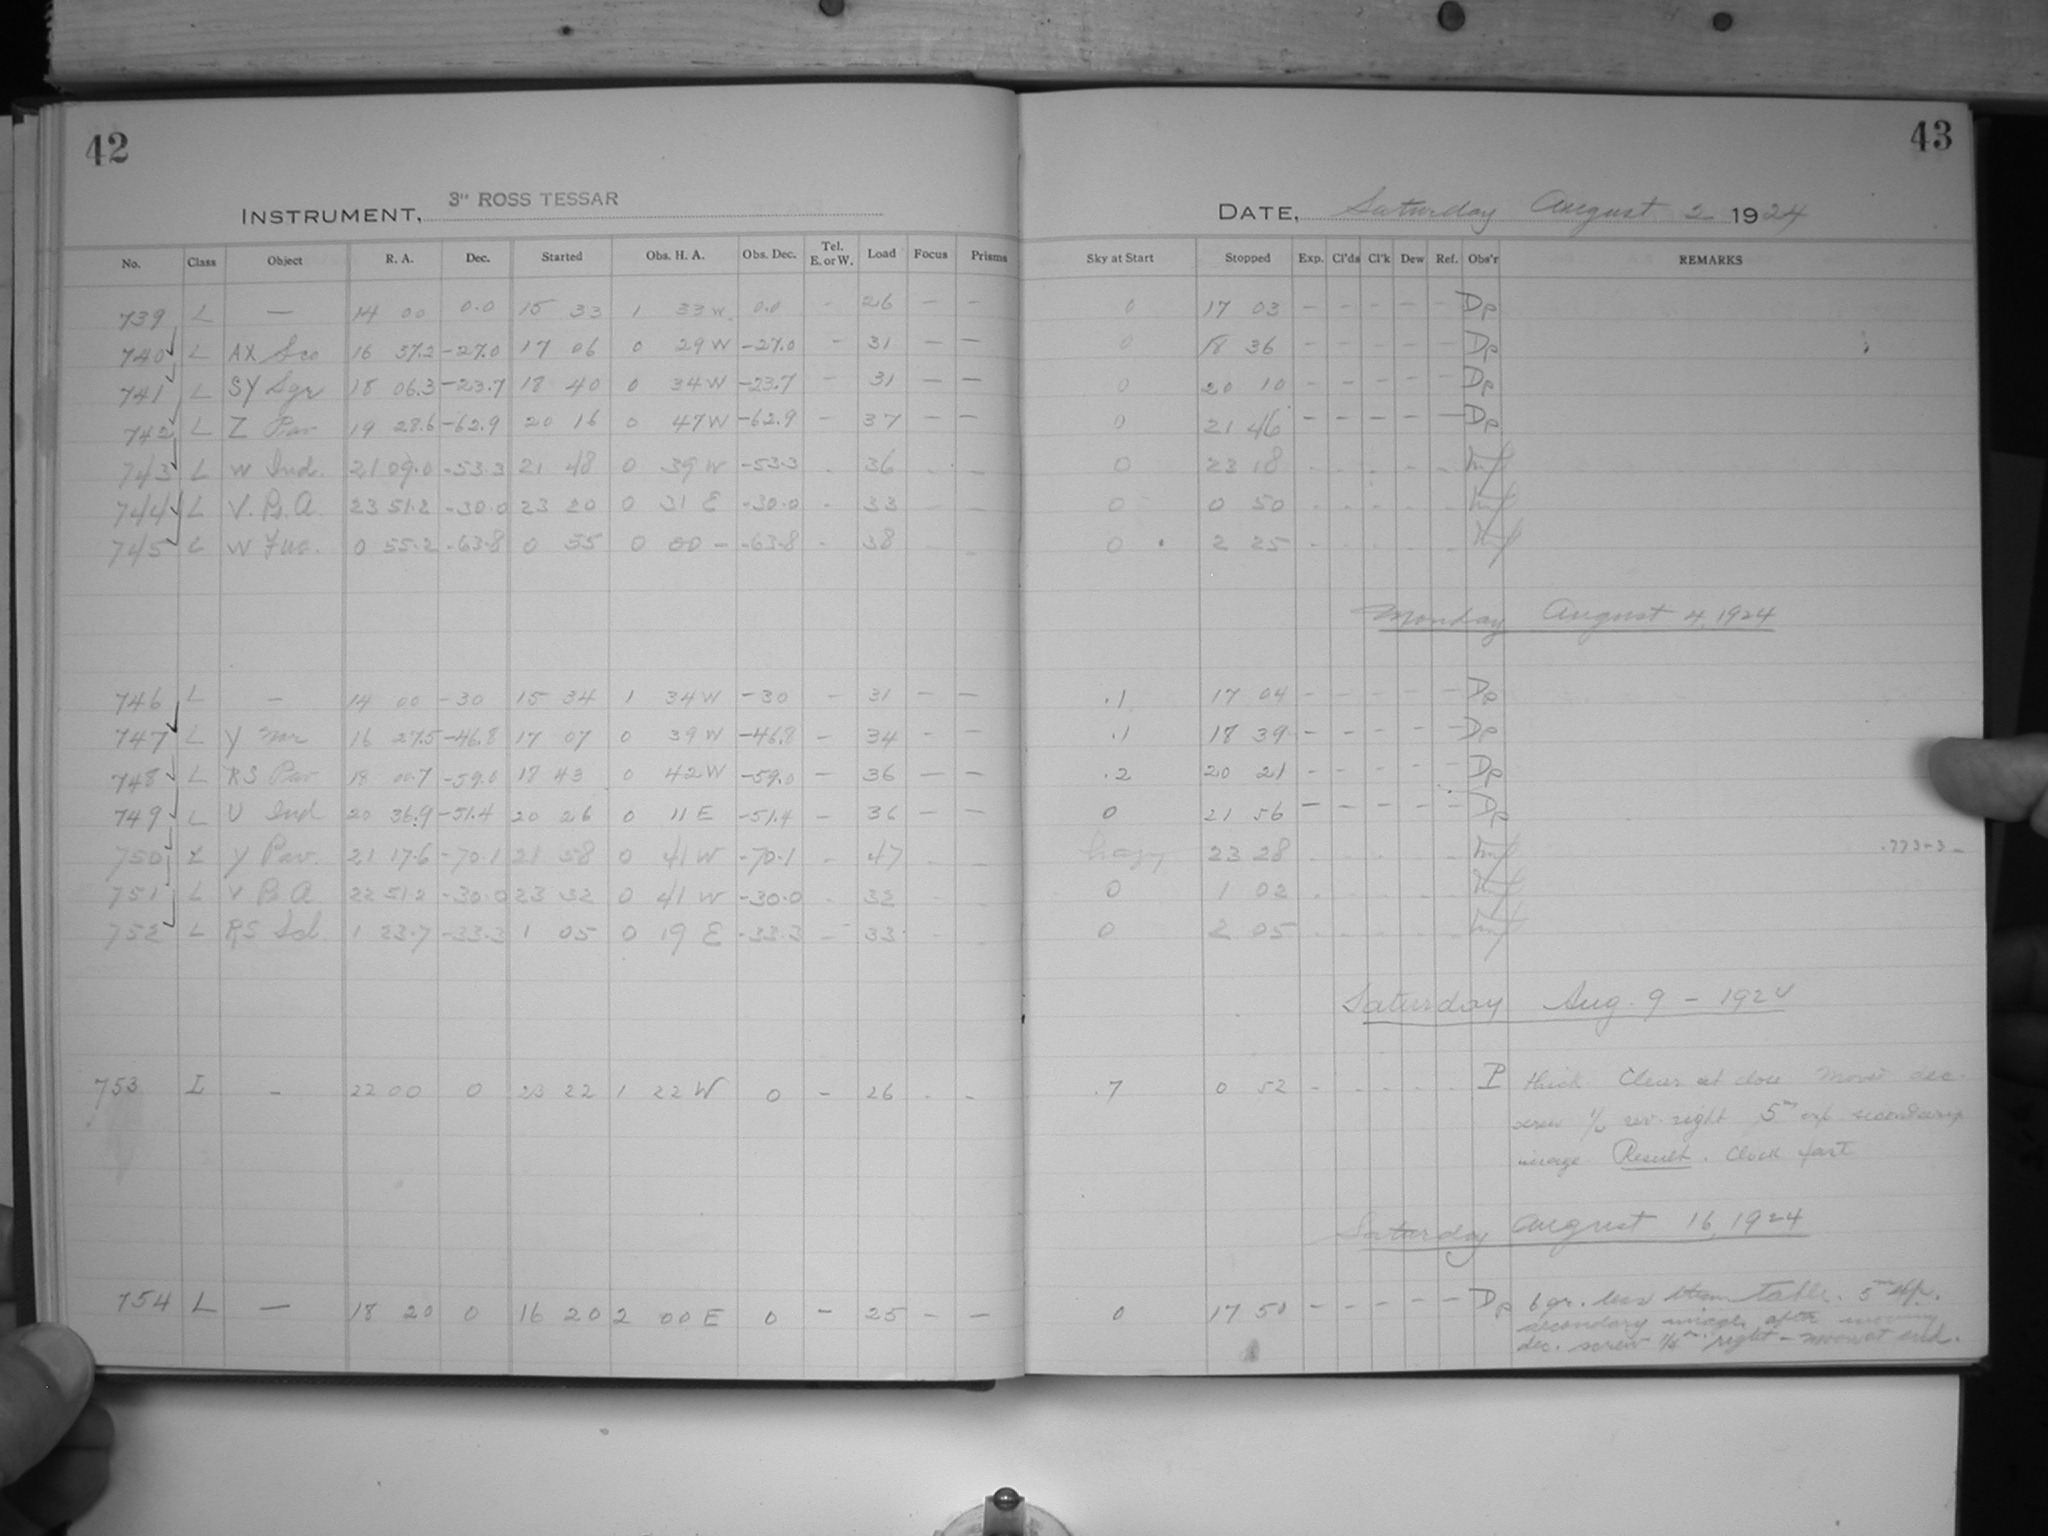 42
43
INSTRUMENT, 3" ROSS TESSAR
DATE, Saturday August 2 1924
No. Class Object R. A. Dec. Started Obs. H. A. Obs. Dec. Tel. E. or W. Load Focus Prisms Sky at Start Stopped Exp. Cl'ds Cl'k Dew Ref. Obs'r REMARKS
739 L — 14 00 0.0 15 33 1 33 W 0.0 - 26 — - 0 17 03 - - - - - Dp
740 L AX Sco 16 37.2 -27.0 17 06 0 29 W -27.0 - 31 — — 0 18 36 - - - - - Dp
741 L SY Sgr 18 06.3 -23.7 18 40 0 34 W -23.7 - 31 — — 0 20 10 - - - - - Dp
742 L Z Pav 19 28.6 -62.9 20 16 0 47 W -62.9 - 37 — — 0 21 46 - - - - - Dp
743 L W Ind. 21 09.0 -53.3 21 48 0 39 W -53.3 - 36 - - 0 23 18 - - - - -
744 L V. P.A. 23 51.2 -30.0 23 20 0 31 E -30.0 - 33 - - 0 0 50 - - - - -
745 L W Tuc. 0 55.2 -63.8 0 55 0 00 — -63.8 - 38 - - 0 2 25 - - - - -
Monday August 4, 1924
746 L - 14 00 -30 15 34 1 34 W -30 - 31 — — .1 17 04 - - - - - Dp
747 L Y Nor 16 27.5 -46.8 17 07 0 39 W -46.8 - 34 - - .1 18 39 - - - - - Dp
748 L RS Pav 18 00.7 -59.0 18 43 0 42 W -59.0 - 36 — — .2 20 21 - - - - - Dp
749 L U Ind 20 36.9 -51.4 20 26 0 11 E -51.4 - 36 - - 0 21 56 - - - - - Dp
750 L Y Pav. 21 17.6 -70.1 21 58 0 41 W -70.1 - 47 - - hazy 23 28 - - - - - .773-3
751 L V P.A. 22 51.2 -30.0 23 32 0 41 W -30.0 - 32 - - 0 1 02 - - - - -
752 L RS Scl. 1 23.7 -33.3 1 05 0 19 E -33.3 - 33 - - 0 2 05 - - - - -
Saturday Aug. 9 - 1924
753 L - 22 00 0 23 22 1 22 W 0 - 26 - - .7 0 52 - - - - - P thick Clear at close Moved dec.
screw 1/6 rev. right 5m exp secondary
image. Result. Clock fast
Saturday August 16, 1924
754 L — 18 20 0 16 20 2 00 E 0 - 25 - — 0 17 50 - - - - - Dp 6 gr. less than table. 5m exp.
secondary image after moving
dec. screw right - moon at end.